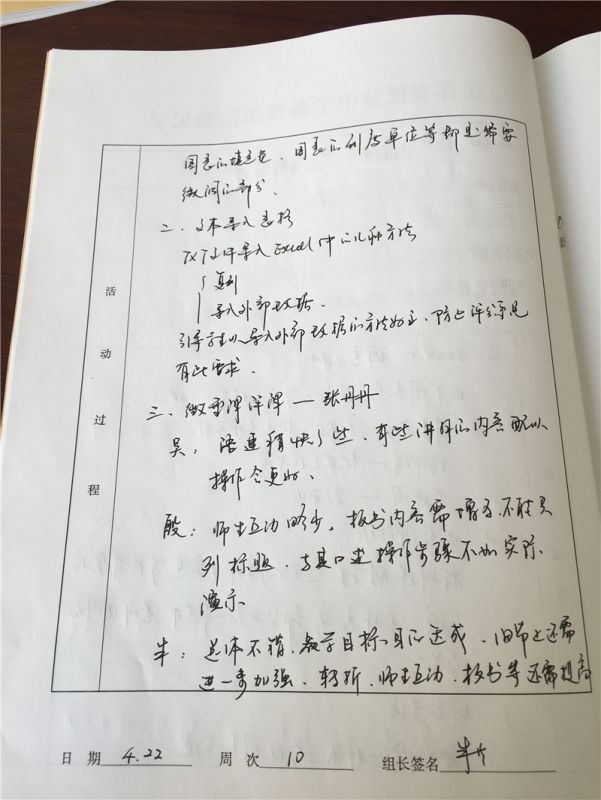 图表的填充色、图表的刻度单位等都是需要
微调的部分。
二、文本导入表格
TXT文件导入Excel中的几种方法
复制
导入外部数据。
引导学生以导入外部数据的方法为主，防止评分系统
有此要求。
三、微课评课 — 张丹丹
吴：语速稍快了些，有些讲解的内容配以
操作会更好。
殷：师生互动略少，板书内容需增多，不能只
列标题，与其口述操作步骤不如实际
演示
牛：总体不错，教学目标已达成，细节上还需
进一步加强，转折、师生互动、板书等还需提高
活动过程
日 期 4.22 周 次 10 组长签名 牛